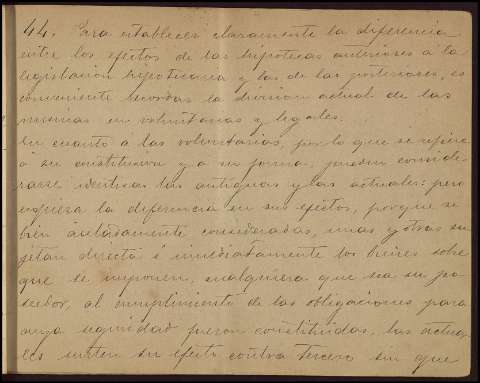 44. Para establecer claramente la diferencia
entre los efectos de las hipotecas anteriores á la
legislación hipotecaria y los de las posteriores, es
conveniente recordar la division actual de las
mismas en voluntarias y legales.
En cuanto a las voluntarias, por lo que se refiere
á su constitucion y a su forma, pueden conside-
rarse identicas las antiguas y las actuales: pero
empieza la diferencia en sus efectos, porque si
bien aisladamente consideradas, unas y otras su
jetan directa é inmediatamente los bienes sobre
que se imponen, cualquiera que sea su po-
seedor, al cumplimiento de las obligaciones para
cuya seguridad fueron constituidas, las actua-
les surten su efecto contra tercero sin que